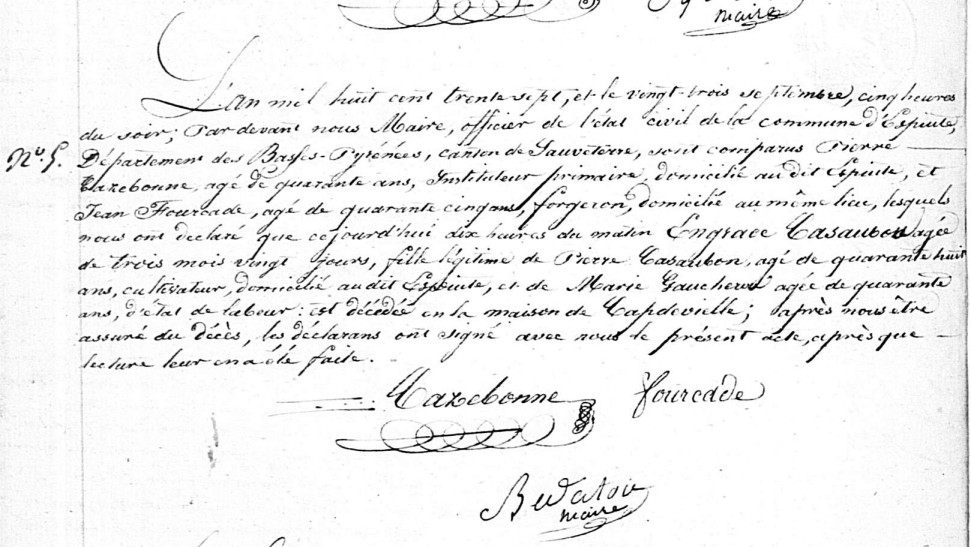 maire
L'an mil huit cent trente sept, et le vingt-trois septembre, cinq heures
du soir; Par devant nous Maire, officier de l'état civil de la commune d'Espiute,
N.º 5. Département des Basses-Pyrénées, canton de Sauveterre, sont comparus Pierre
Cazebonne, agé de quarante ans, Instituteur primaire, domicilié au dit Espiute, et
Jean Fourcade, agé de quarante cinq ans, forgeron, domicilié au même lieu, lesquels
nous ont declaré que cejourd'hui dix heures du matin Engrace Casaubon agée
de trois mois vingt jours, fille légitime de Pierre Casaubon, agé de quarante huit
ans, cultivateur, domicilié au dit Espiute, et de Marie Gaucherou agée de quarante
ans, d'état de labour: est décédée en la maison de Capdevielle; après nous être
assuré du décès, les déclarans ont signé avec nous le présent acte, après que
lecture leur en a été faite.
Cazebonne fourcade
maire